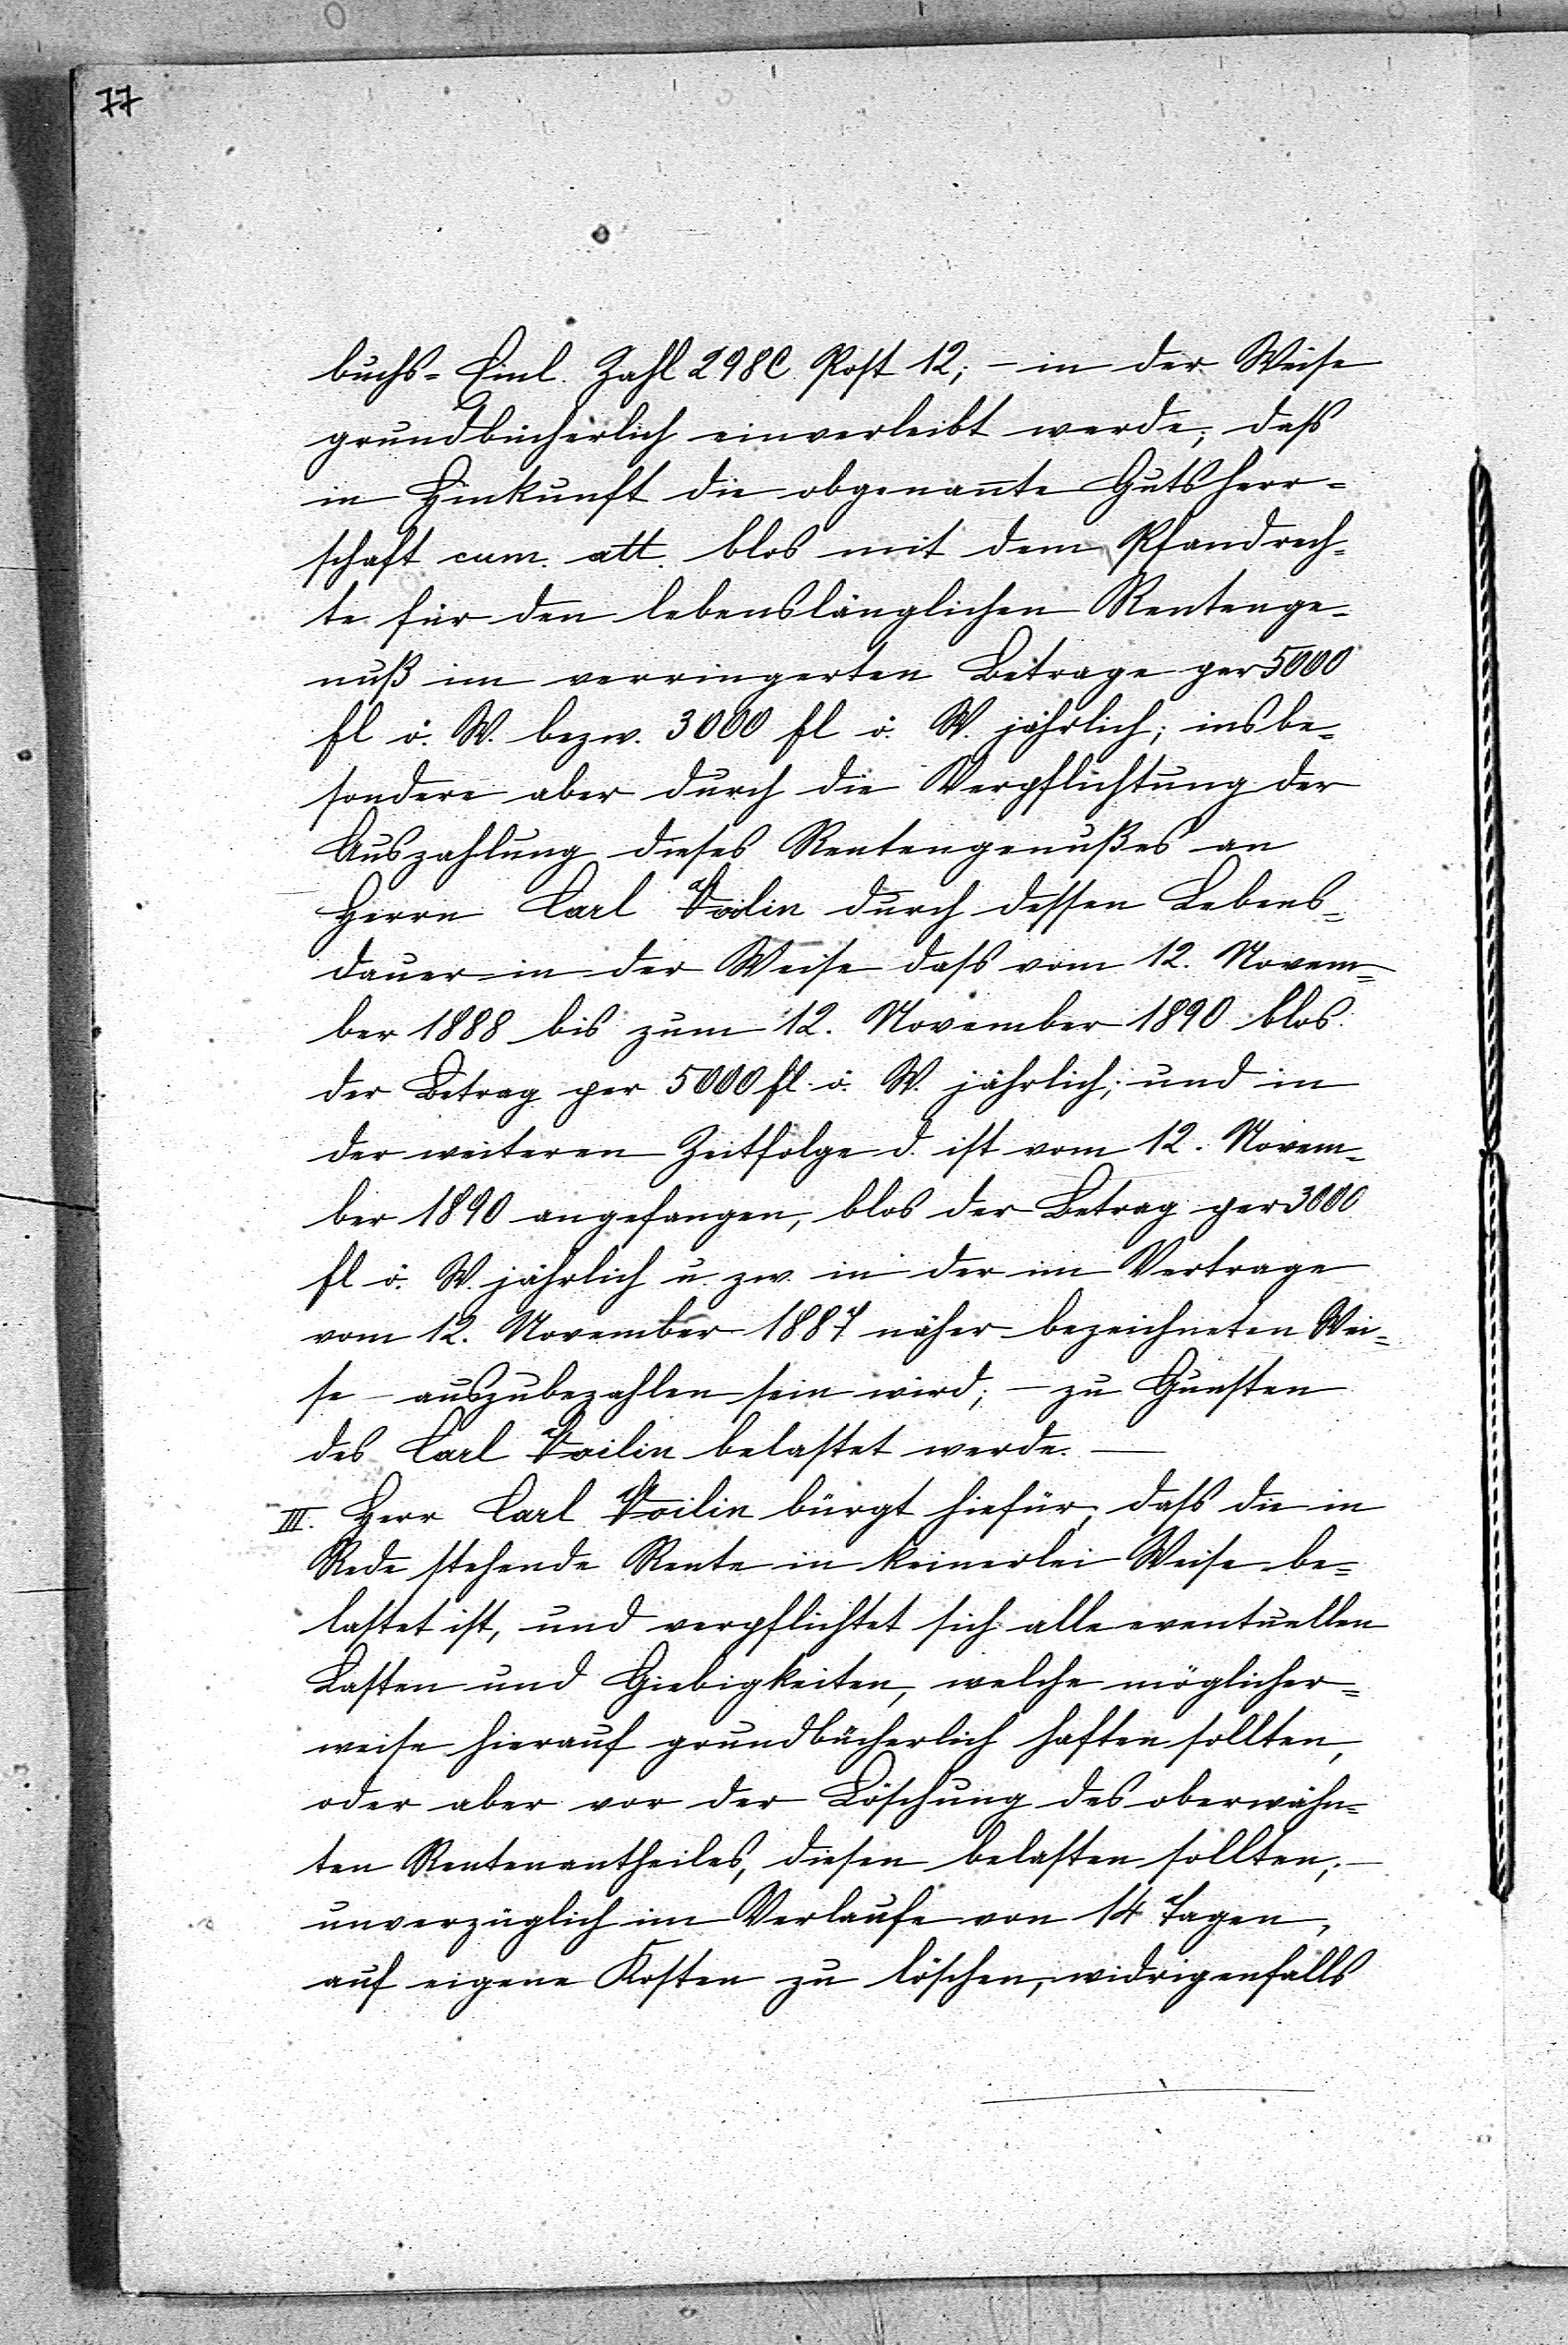 77
buchs- Einl. Zahl 298 C Post 12; – in der Weise
grundbücherlich einverleibt werde; daß
in Hinkunft die obgenannte Gutsherr=
schaft cum. att. blos mit dem Pfandrech=
te für den lebenslänglichen Rentenge=
nuß im verringerten Betrage per 5000
fl ö. W. bezw. 3000 fl ö. W. jährlich; insbe=
sondere aber durch die Verpflichtung der
Auszahlung dieses Rentengenußes an
Herrn Carl Voilin durch dessen Lebens=
dauer in der Weise dass vom 12. Novem=
ber 1888 bis zum 12. November 1890 blos
der Betrag per 5000 fl. ö. W. jährlich; und in
der weiteren Zeitfolge d. ist vom 12. Novem=
ber 1890 angefangen, blos der Betrag per 3000
fl ö. W. jährlich u. zw. in der im Vertrage
vom 12. November 1887 näher bezeichneten Wei=
se – auszubezahlen sein wird; – zu Gunsten
des Carl Voilin belastet werde. —
III. Herr Carl Voilin bürgt hiefür, dass die in
Rede stehende Rente in keinerlei Weise be=
lastet ist, und verpflichtet sich alle eventuellen
Lasten und Giebigkeiten, welche möglicher=
weise hierauf grundbücherlich haften sollten,
oder aber vor der Löschung des oberwähn=
ten Rentenantheiles, diesen belasten sollten; –
unverzüglich im Verlaufe von 14 Tagen,
auf eigene Kosten zu löschen, widrigenfalls